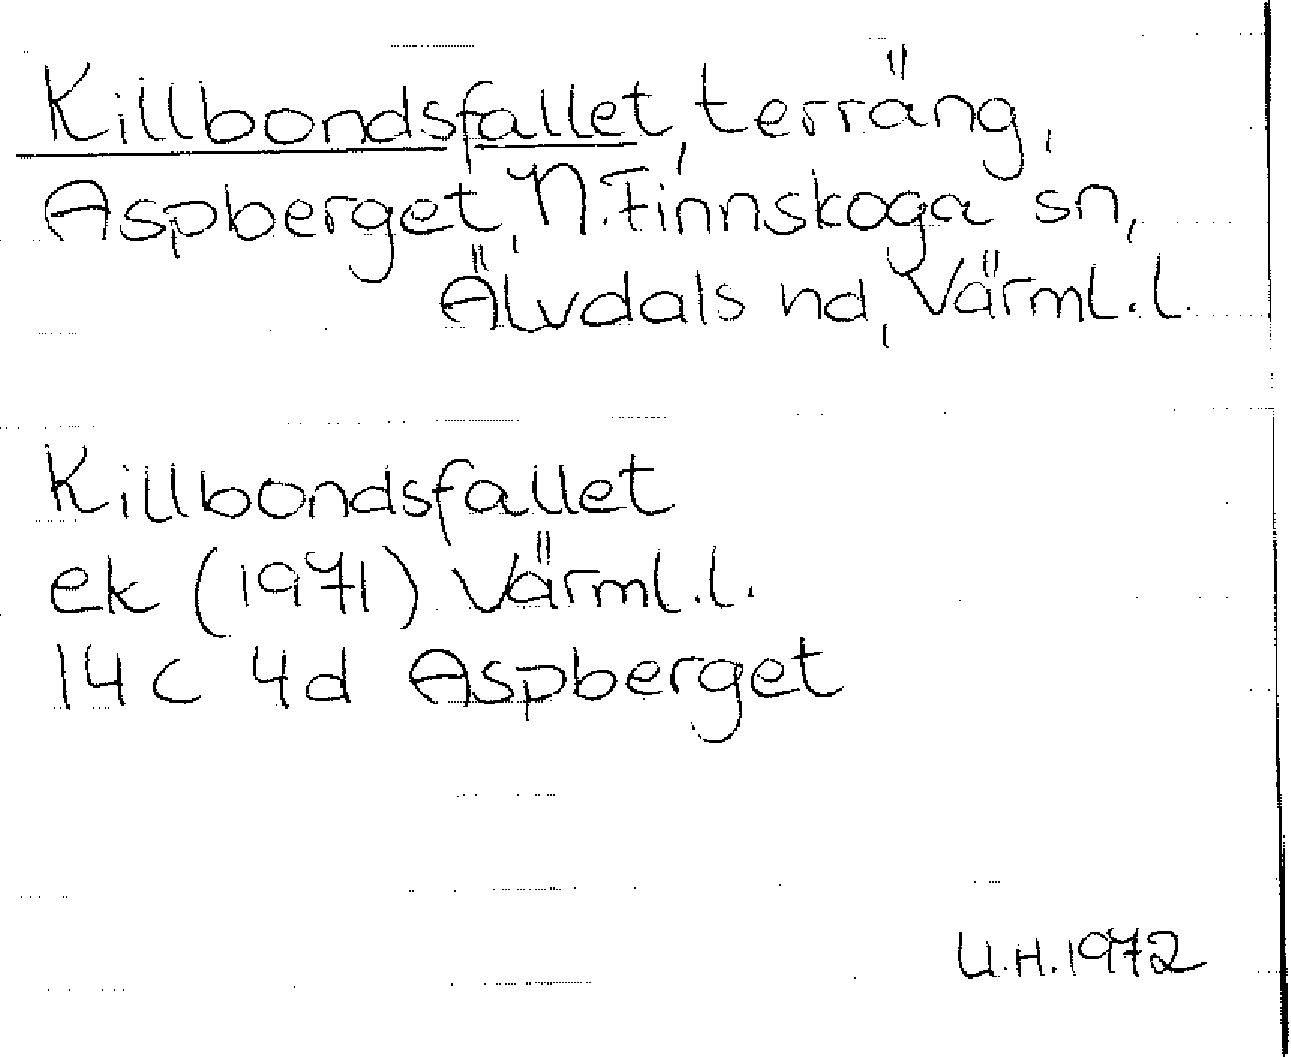 Killbondsfallet, terräng,
Aspberget, N. Finnskoga sn,
Älvdals hd, Värml. l.
Killbondsfallet
ek (1971) Värml. l.
14 c 4d Aspberget
U.H. 1972